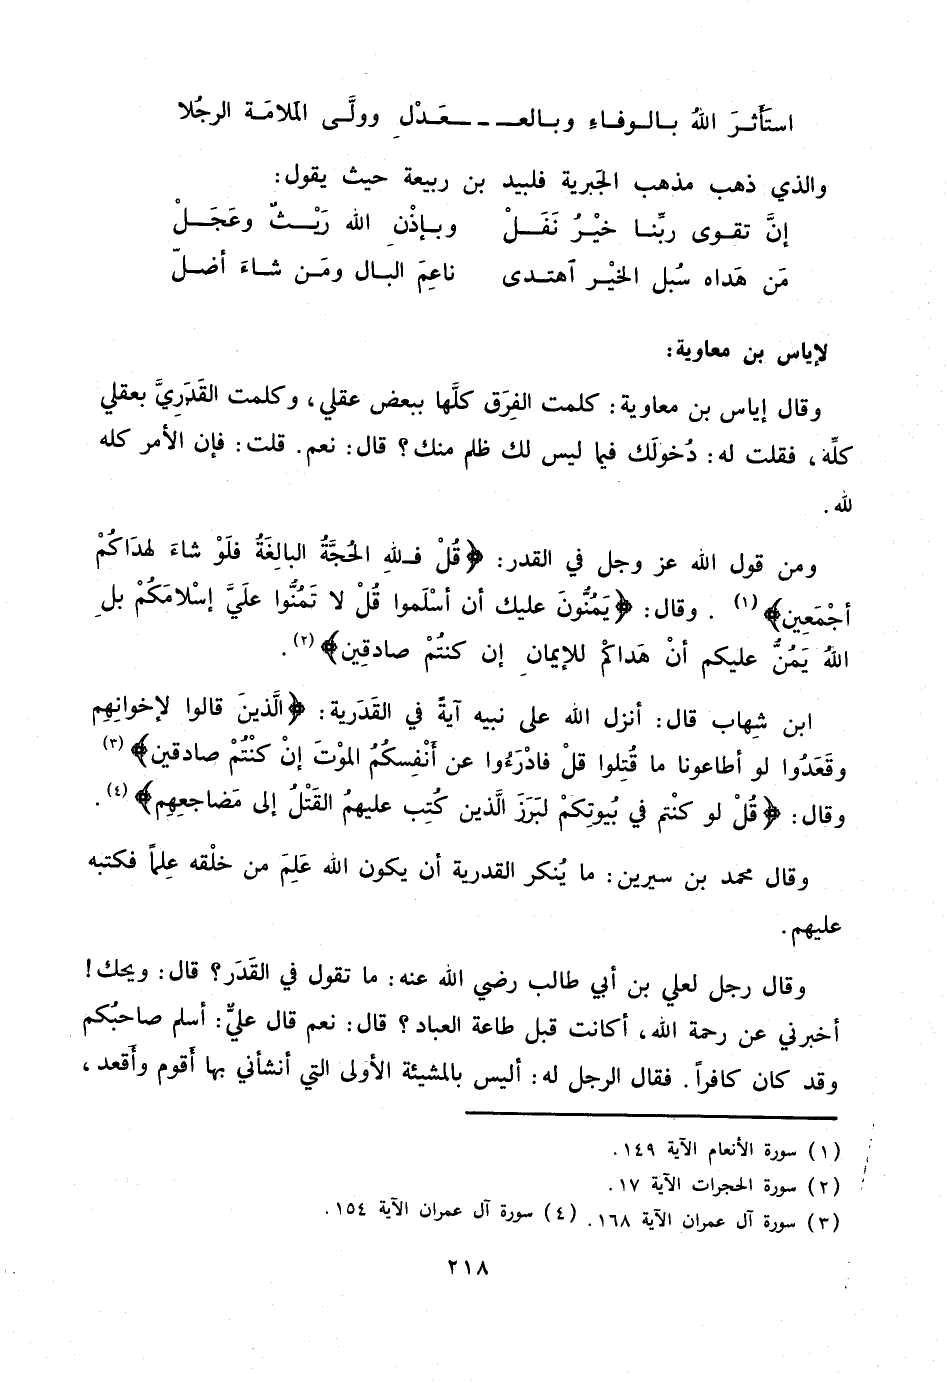 استَأْثرَ اللهُ بالوفاءِ وبالعـ ـ ـ ـعَدْلِ وولَّى المَلامَة الرجُلا
والذي ذهب مذهب الجَبرية فلبيد بن ربيعة حيث يقول:
إنَّ تقوى ربِّنا خيْرُ نَفَلْ وبإذْنِ الله رَيْثٌ وعَجَلْ
مَن هَداه سُبل الخيْر ٱهتدى ناعِمَ البال ومَن شاءَ أضلّ
لإياس بن معاوية:
وقال إياس بن معاوية: كلمت الفِرَق كلَّها ببعض عقلي، وكلمت القَدَرِيَّ بعقلي
كلِّه، فقلت له: دُخولَك فيما ليس لك ظلم منك؟ قال: نعم. قلت: فإن الأمر كله
لله.
ومن قول الله عز وجل في القدر: ﴿قُلْ فللهِ الحُجَّةُ البالِغَةُ فلَوْ شاءَ لهدَاكُمْ
أجْمَعِين﴾(١). وقال: ﴿يَمُنُّونَ عليك أن أسْلَموا قُلْ لا تَمُنُّوا علَيَّ إسْلامَكُمْ بلِ
اللهُ يَمُنُّ عليكم أنْ هَداكمْ للإيمانِ إن كنتُمْ صادقِين﴾(٢).
ابن شِهاب قال: أنزل الله على نبيه آيةً في القَدَرية: ﴿الَّذينَ قالوا لإخوانِهِم
وقَعَدُوا لو أطاعونا ما قُتِلوا قلْ فادْرَءُوا عن أَنْفِسكُمُ الموْتَ إنْ كنْتُمْ صادقين﴾(٣)
وقال: ﴿قُلْ لو كنْتم في بُيوتِكمْ لبَرَزَ الَّذين كُتِب عليهمُ القَتْلُ إلى مَضاجعِهِم﴾(٤).
وقال محمد بن سيرين: ما يُنكر القدرية أن يكون الله عَلِمَ من خلْقه عِلماً فكتبه
عليهم.
وقال رجل لعلي بن أبي طالب رضي الله عنه: ما تقول في القَدَر؟ قال: ويحك!
أخبرني عن رحمة الله، أكانت قبل طاعة العباد؟ قال: نعم قال عليٌّ: أسلم صاحبُكم
وقد كان كافراً. فقال الرجل له: أليس بالمشيئة الأولى التي أنشأني بها أَقوم وأَقعد،
(١) سورة الأنعام الآية ١٤٩.
(٢) سورة الحجرات الآية ١٧.
(٣) سورة آل عمران الآية ١٦٨. (٤) سورة آل عمران الآية ١٥٤.
٢١٨